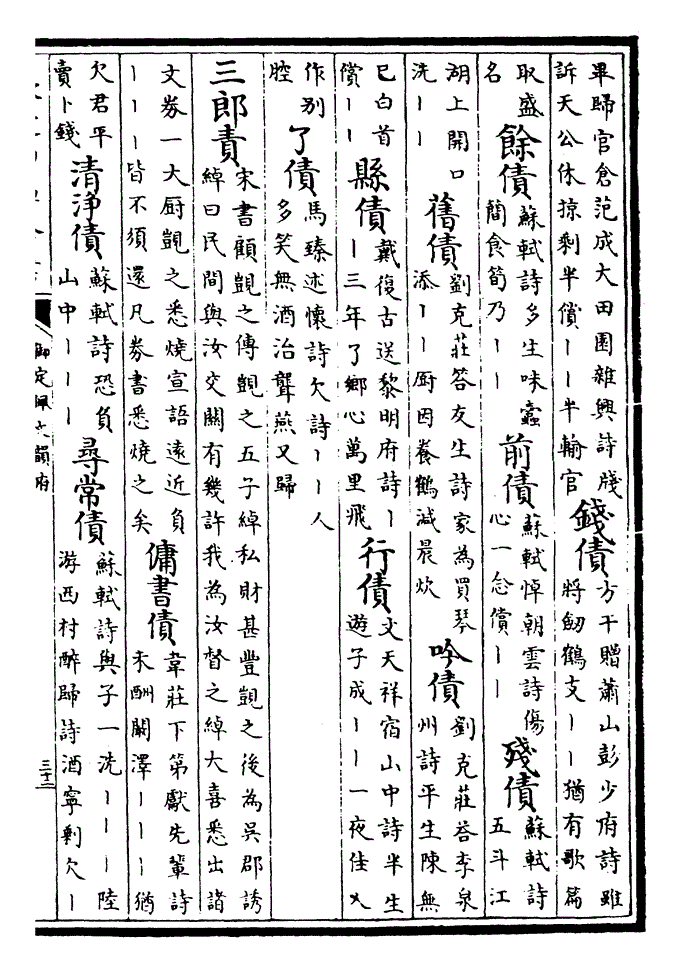 畢歸官倉范成大田園雜興詩牋
訴天公休掠剩半償丨丨半輸官
錢債
方干贈蕭山彭少府詩雖
將劒鶴支丨丨猶有歌篇
取盛
名
餘債
蘇軾詩多生味蠧
簡食筍乃丨丨
前債
蘇軾悼朝雲詩傷
心一念償丨丨
殘債
蘇軾詩
五斗江
湖上開口
洗丨丨
舊債
劉克莊答友生詩家為買琴
添丨丨厨因養鶴減晨炊
吟債
劉克莊答李泉
州詩平生陳無
已白首
償丨丨
縣債
戴復古送黎明府詩丨
丨三年了鄉心萬里飛
行債
文天祥宿山中詩半生
遊子成丨丨一夜佳人
作别
腔
了債
馬臻述懷詩欠詩丨丨人
多笑無酒治聾燕又歸
三郎責
宋書顧覬之傳覬之五子綽私財甚豐覬之後為吳郡誘
綽曰民間與汝交關有幾許我為汝督之綽大喜悉出諸
文券一大厨覬之悉燒宣語遠近負
丨丨丨皆不須還凡券書悉燒之矣
傭書債
韋莊下第獻先輩詩
未酬闞澤丨丨丨猶
欠君平
賣卜錢
清淨債
蘇軾詩恐負
山中丨丨丨
尋常債
蘇軾詩與子一洗丨丨丨陸
游西村醉歸詩酒寧剩欠丨
御定佩文韻府
三十二